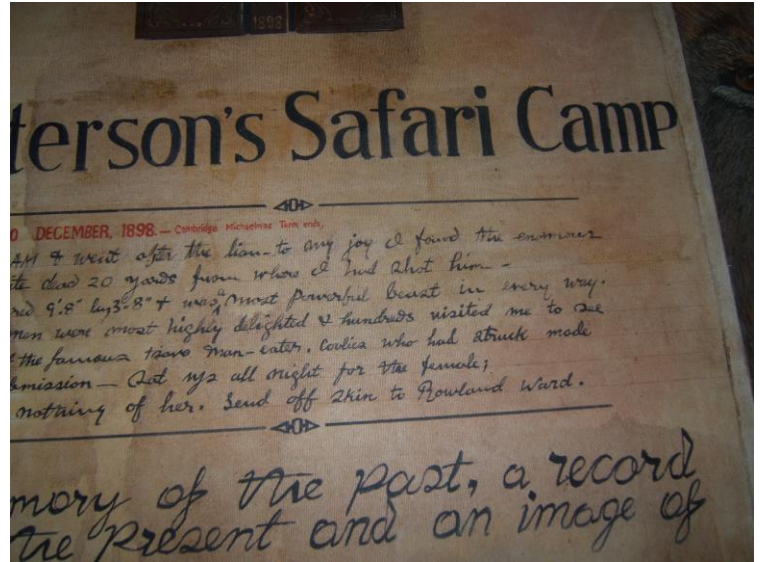 1898
terson's Safari Camp
0 DECEMBER, 1898. — Cambridge Michaelmas Term ends.
AM & went after the lion – to my joy I found the enormous
te dead 20 yards from where I had shot him –
red 9'.8" by 3'.8" & was a most powerful beast in every way.
men were most highly delighted & hundreds visited me to see
the famous tsavo man-eater. Coolies who had struck made
bmission — Sat up all night for the female;
nothing of her. Send off skin to Rowland Ward.
mory of the past, a record
the present and an image of